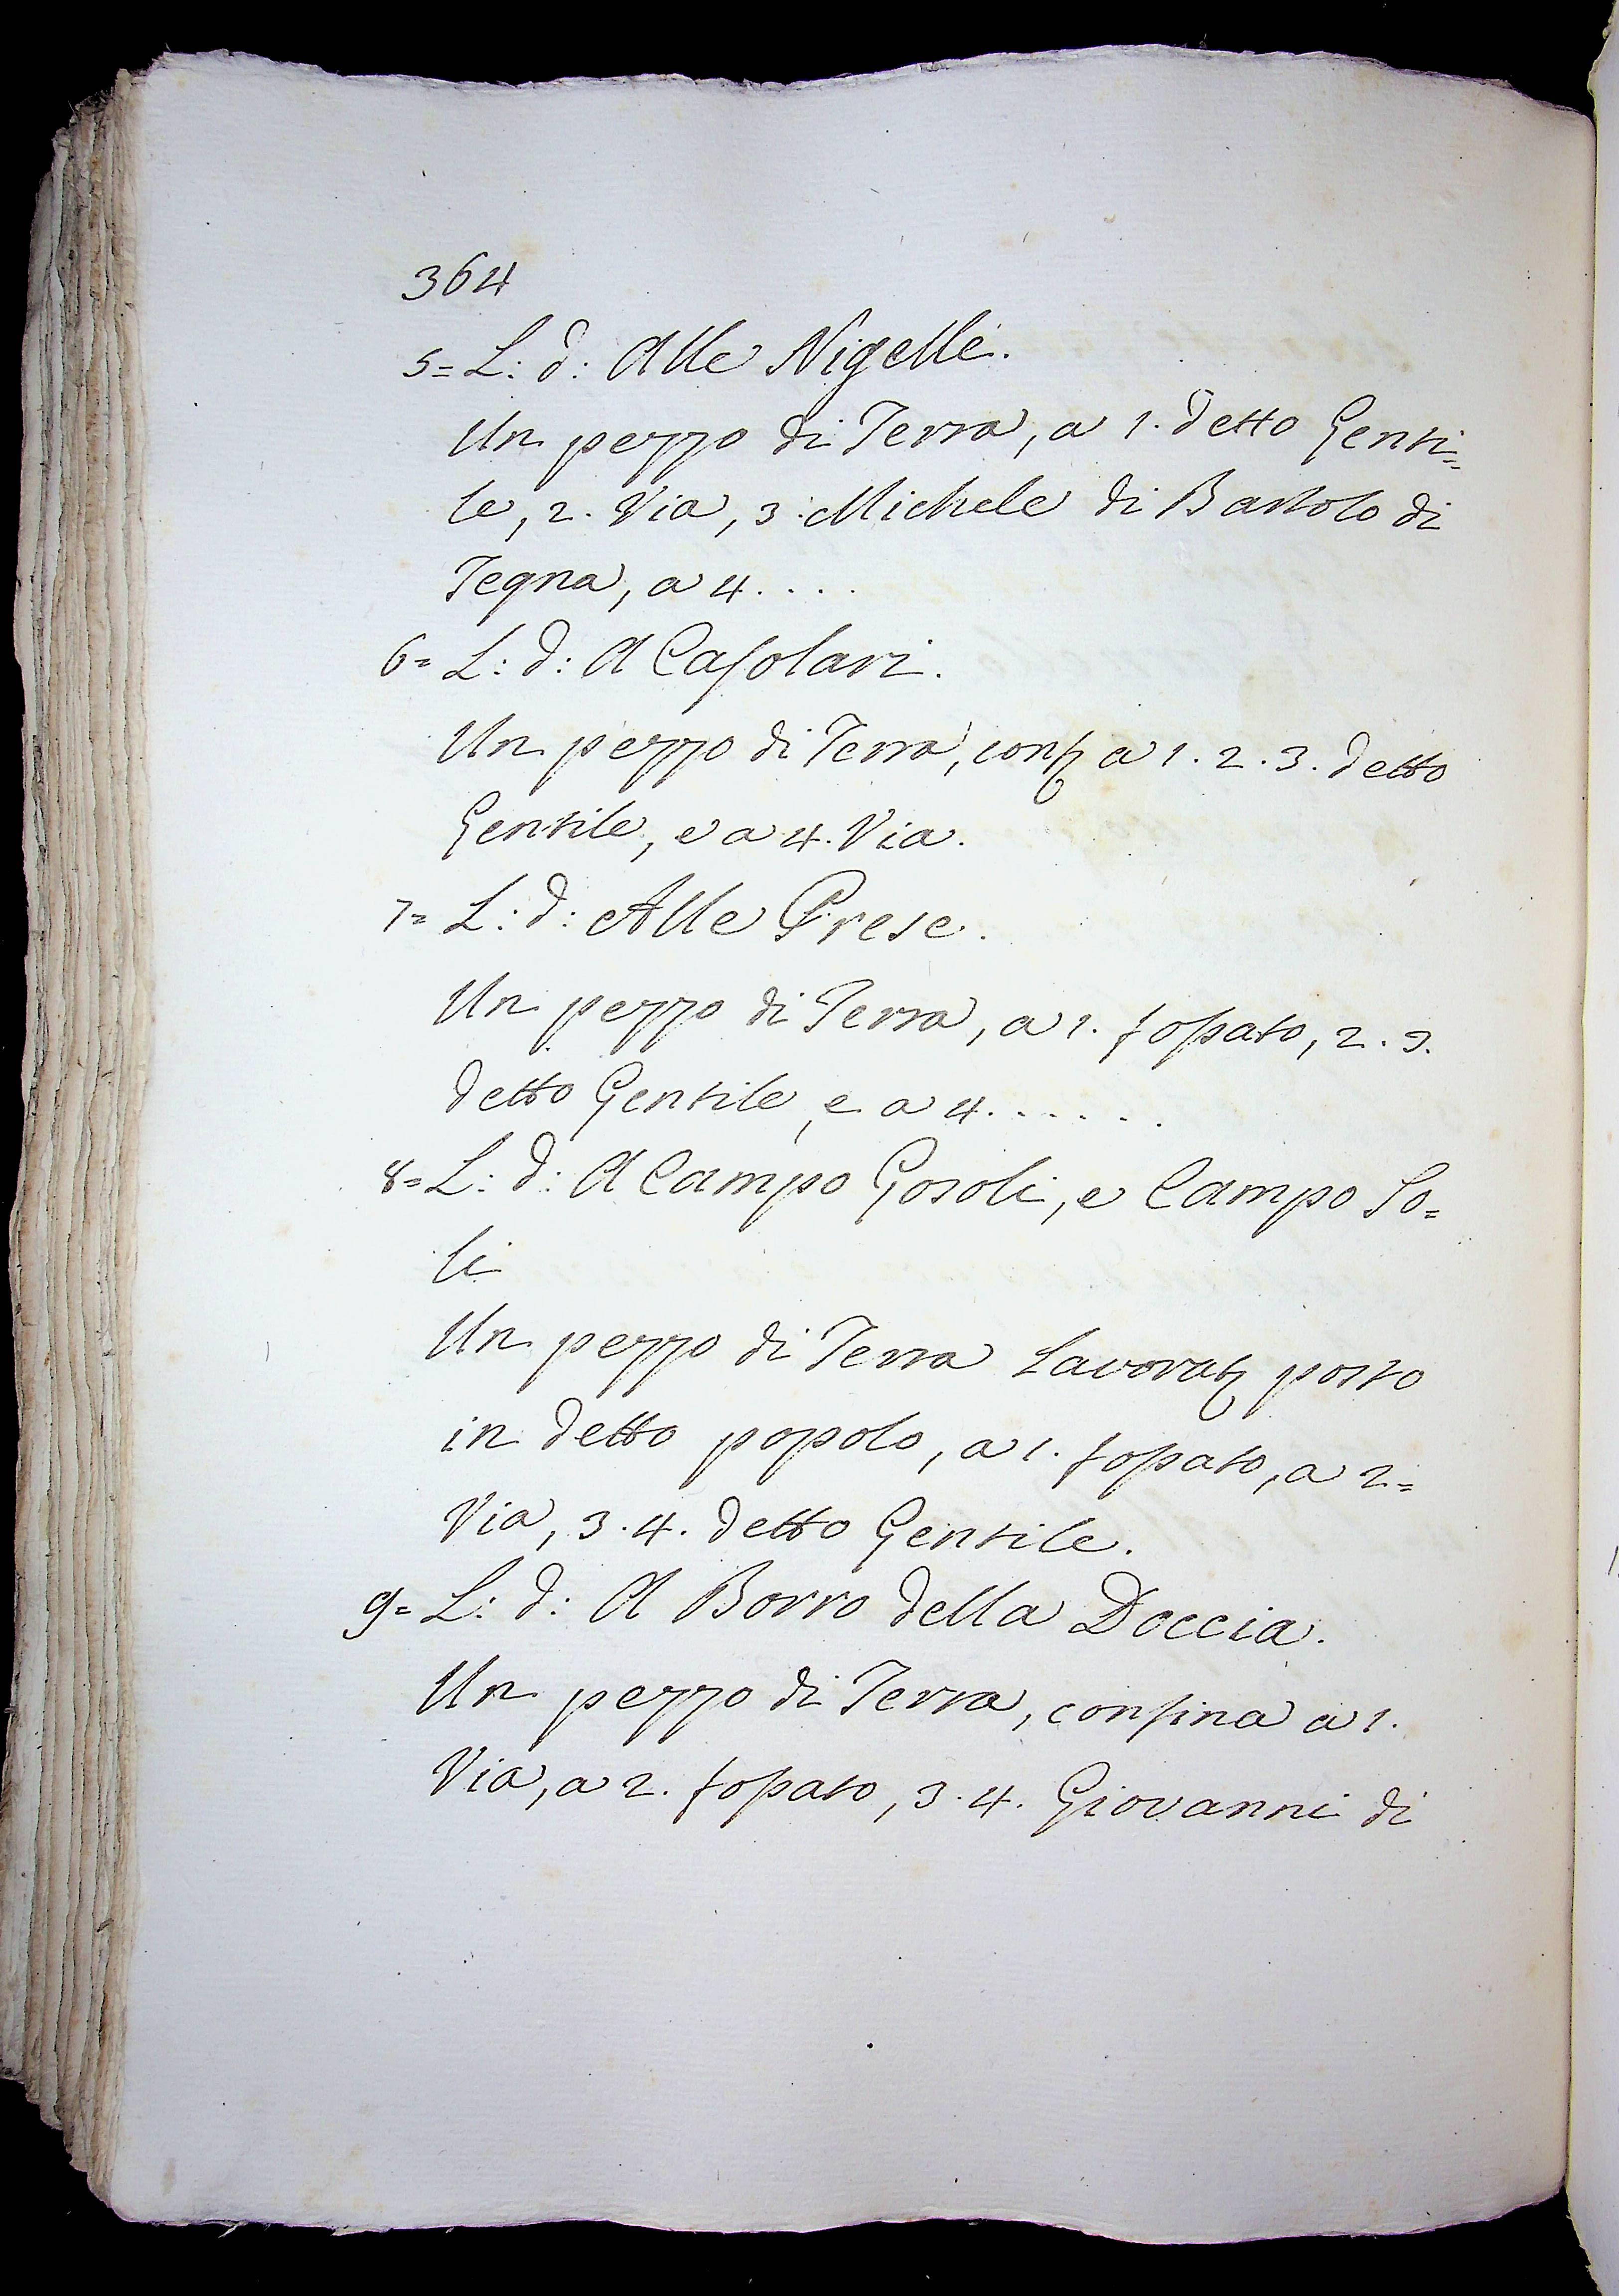 364
5= L: d: Alle Nigelle.
Un pezzo di Terra, a 1. detto Genti=
le, 2. Via, 3. Michele di Bartolo di
Tegna, a 4. . . .
6= L: d: A Casolari.
Un pezzo di Terra, conf. a 1. 2. 3. detto
Gentile, e a 4. Via.
7= L: d: Alle Prese.
Un pezzo di Terra, a 1. fossato, 2. 3.
detto Gentile, e a 4. . . . . .
8= L: d: A Campo Gosoli, e Campo So=
li
Un pezzo di Terra Lavorat. posto
in detto popolo, a 1. fossato, a 2=
Via, 3. 4. detto Gentile.
9= L: d: A Borro della Doccia.
Un pezzo di Terra, confina a 1.
Via, a 2. fossato, 3. 4. Giovanni di